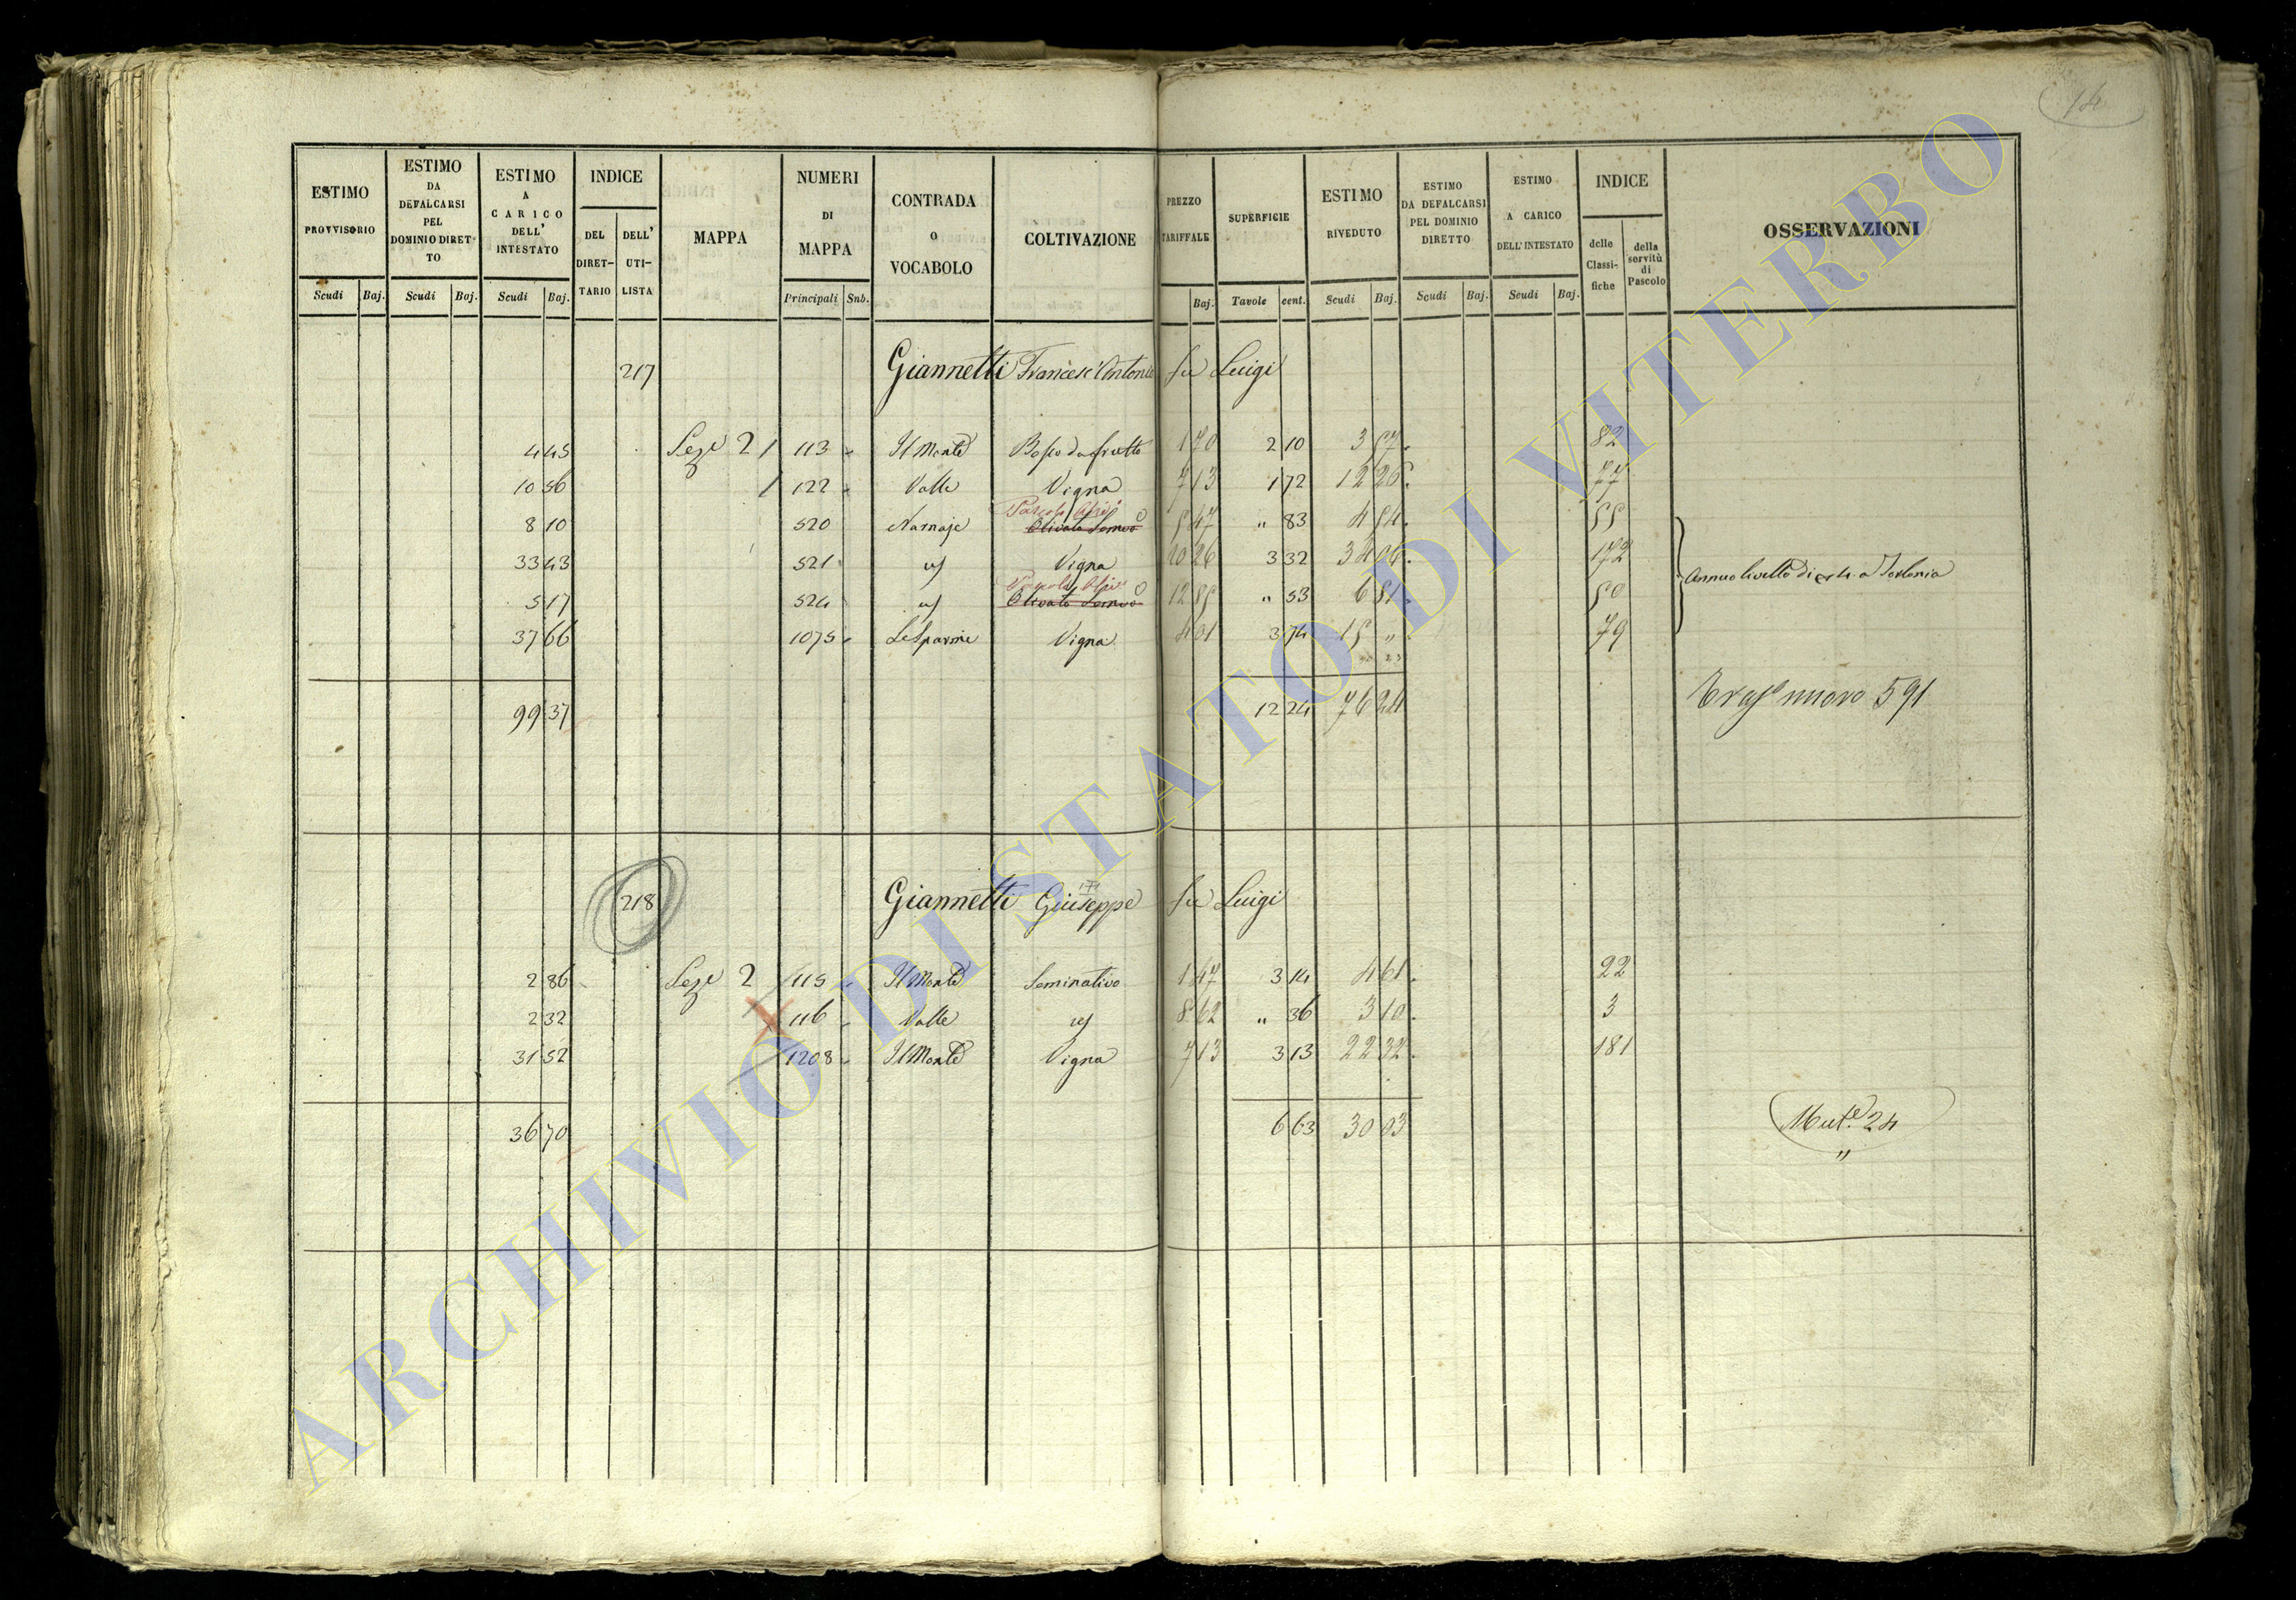 14
ESTIMO PROVVISORIO Scudi Baj.
ESTIMO DA DEFALCARSI PEL DOMINIO DIRET- TO Scudi Baj.
ESTIMO A CARICO DELL' INTESTATO Scudi Baj.
INDICE DEL DIRET- TARIO DELL' UTI- LISTA
MAPPA
NUMERI DI MAPPA Principali Sub.
CONTRADA O VOCABOLO
COLTIVAZIONE
PREZZO TARIFFALE Baj.
SUPERFICIE Tavole cent.
ESTIMO RIVEDUTO Scudi Baj.
ESTIMO DA DEFALCARSI PEL DOMINIO DIRETTO Scudi Baj.
ESTIMO A CARICO DELL'INTESTATO Scudi Baj.
INDICE delle Classi- fiche della servitù di Pascolo
OSSERVAZIONI
217 Giannetti Francesc'Antonio fu Luigi
4 45 Seze 2 / 113 Il Monte Bosco da frutto 1 70 2 10 3 57 82
10 56 / 122 Valle Vigna 7 13 1 72 12 26 77
Pascolo Olivo
8 10 520 Narnaje Olivato Semvo 5 47 " 83 4 54 55
33 43 521 Vigna 10 26 3 32 34 06 172
Pascolo Olivo
5 17 524 Olivato Semvo 12 85 " 53 6 81 50
Annuo livello di a Torlonia
37 66 1075 Le Sparme Vigna 4 01 3 74 15 " 79
99 37 12 24 76 24
Traso nuovo 591
218 Giannetti Giuseppe fu Luigi
2 86 Seze 2 115 Il Monte Seminativo 1 47 3 14 4 61 22
2 32 116 Valle 8 62 " 36 3 10 3
31 52 1208 Il Monte Vigna 7 13 3 13 22 32 181
36 70 6 63 30 03
Mute. 24
"
ARCHIVIO DI STATO DI VITERBO